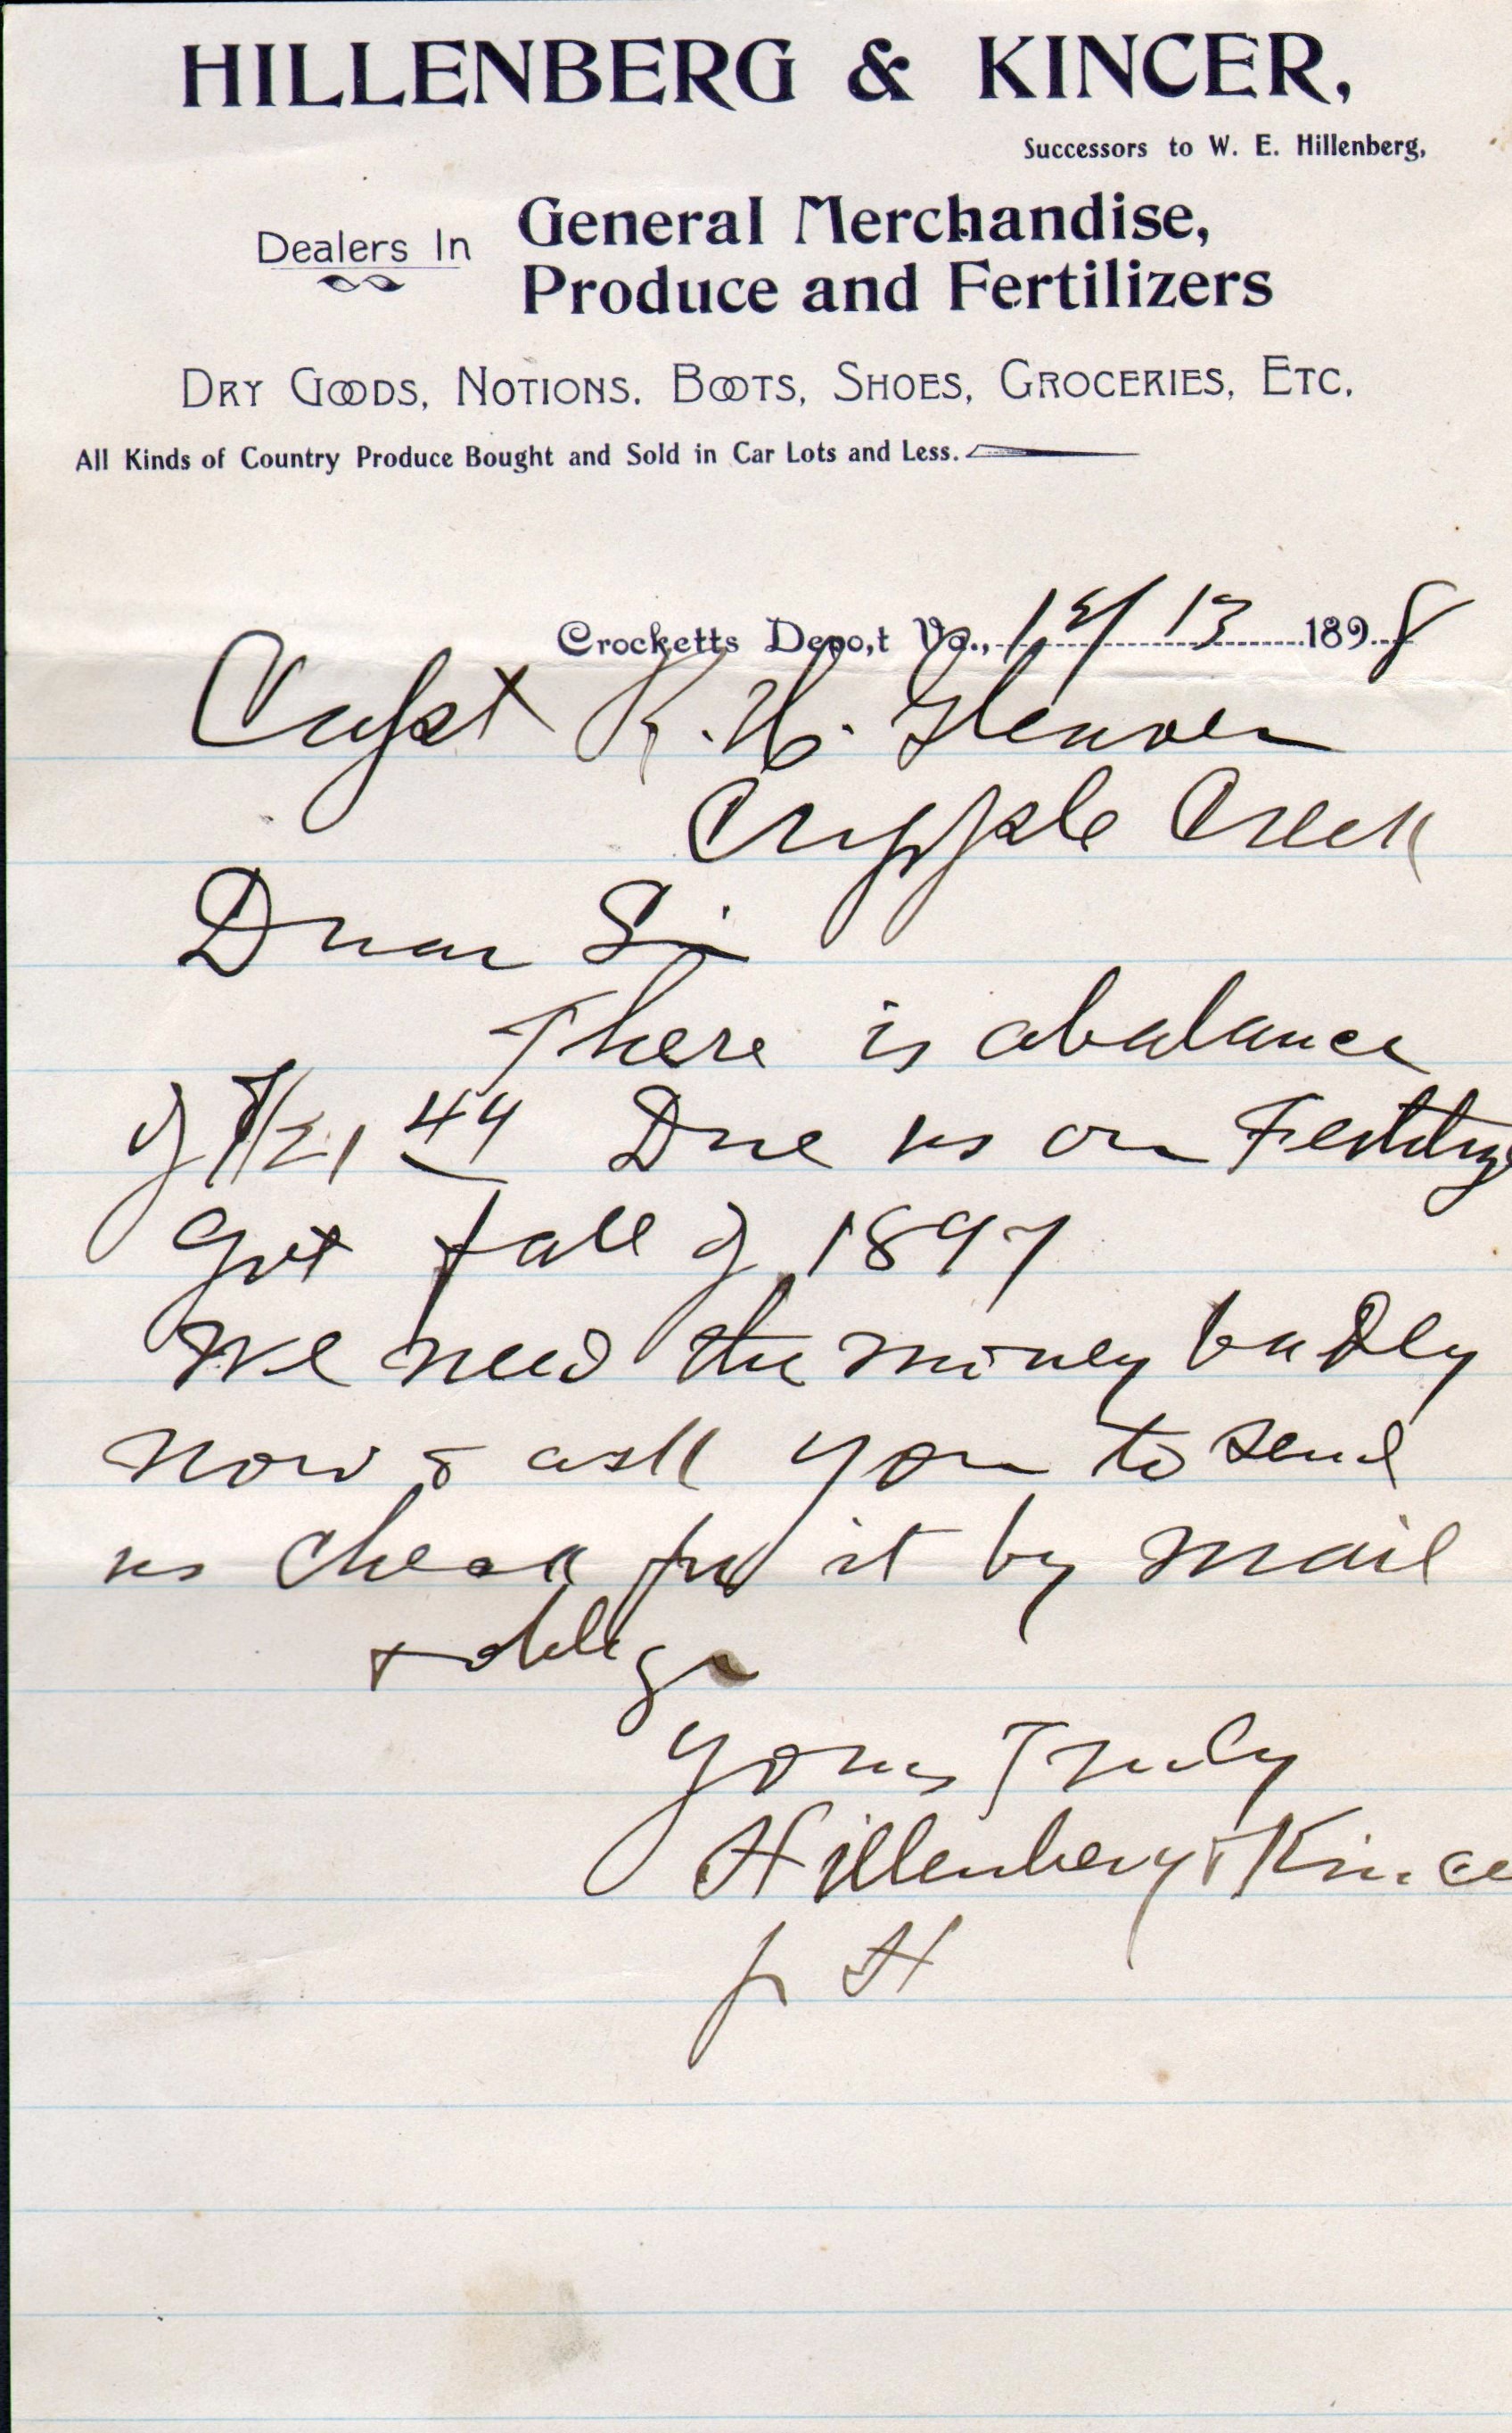 HILLENBERG & KINCER,
Successors to W. E. Hillenberg,
Dealers In
General Merchandise,
Produce and Fertilizers
DRY GOODS, NOTIONS. BOOTS, SHOES, GROCERIES, ETC.
All Kinds of Country Produce Bought and Sold in Car Lots and Less.
Crocketts Depo,t Va., 12/13 1898
Capt R. H. Gleaves
Cripple Creek
Dear Sir
There is a balance
of $21 44 Due us on Fertilize
got fall of 1897
We need the money badly
now & ask you to send
us check for it by mail
& oblige
Yours Truly
Hillenberg & Kince
H